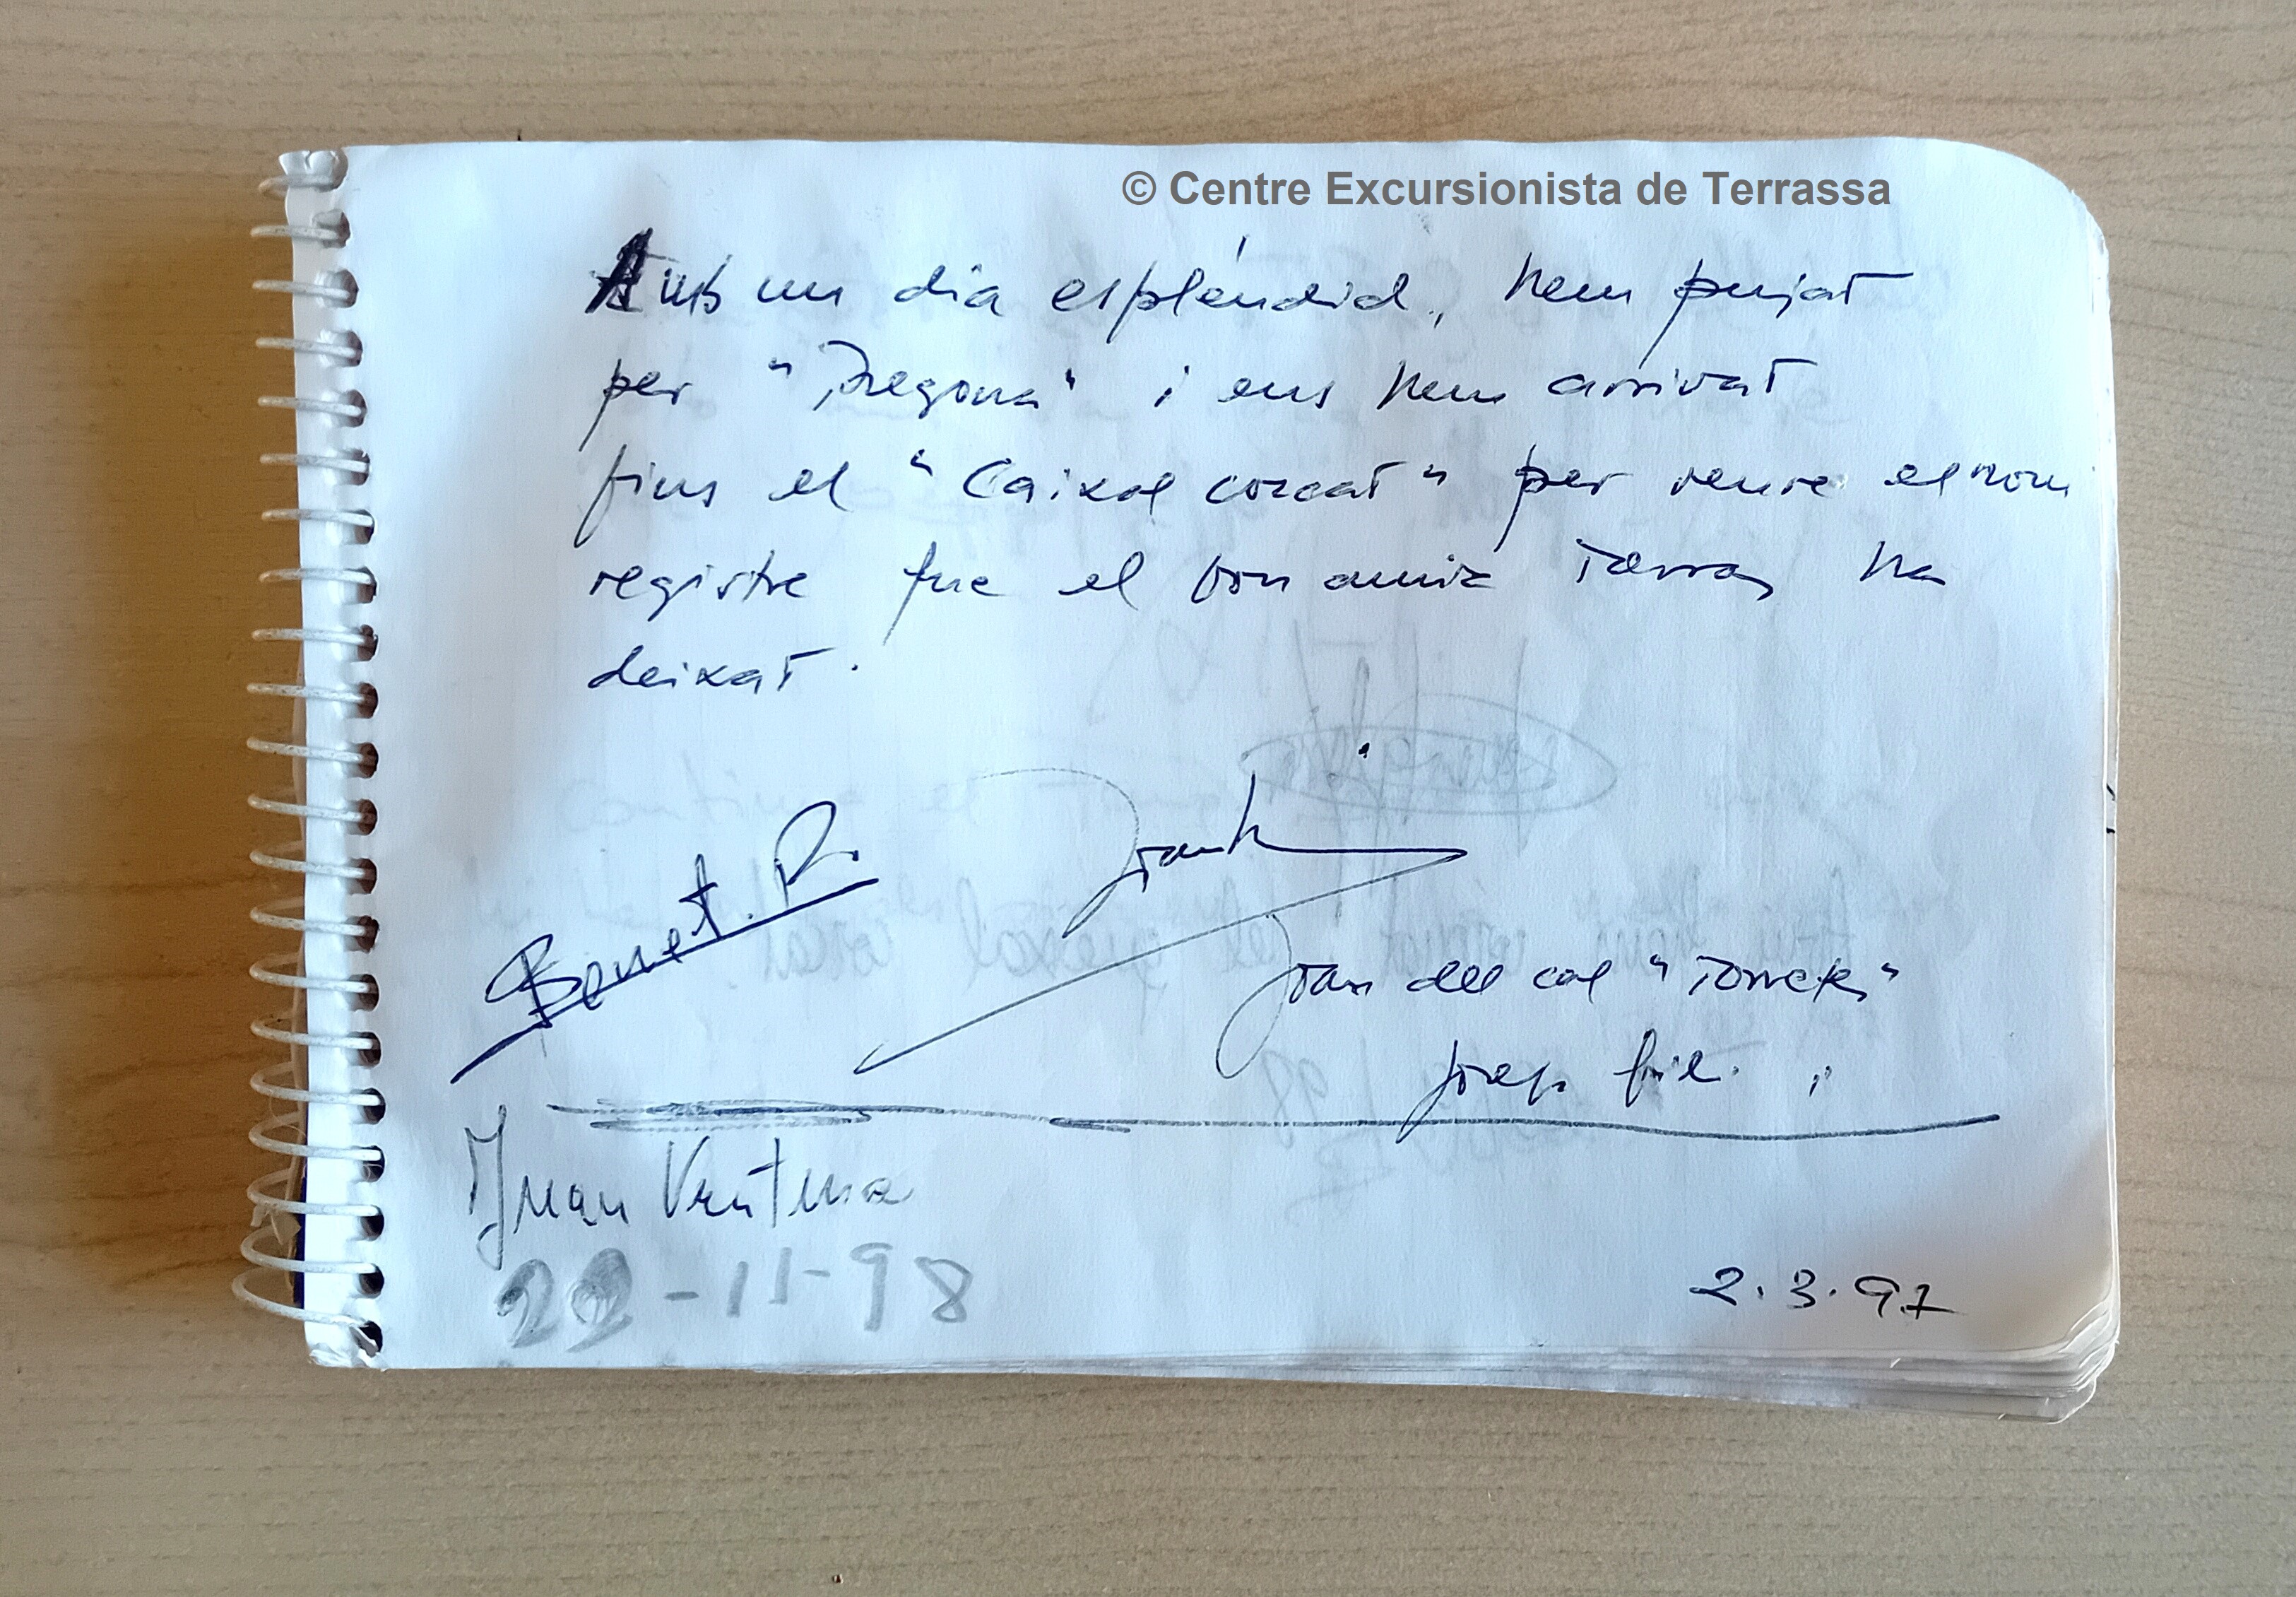 © Centre Excursionista de Terrassa
Amb un dia espléndid, hem pujat
per " " i ens hem arrivat
fins el "Caixal corcat" per veure el nou
registre que el bon amic Torras ha
deixat.
Bonet. R.
Joan del cal "
Josep
Juan Ventura
22-11-98
2.3.97